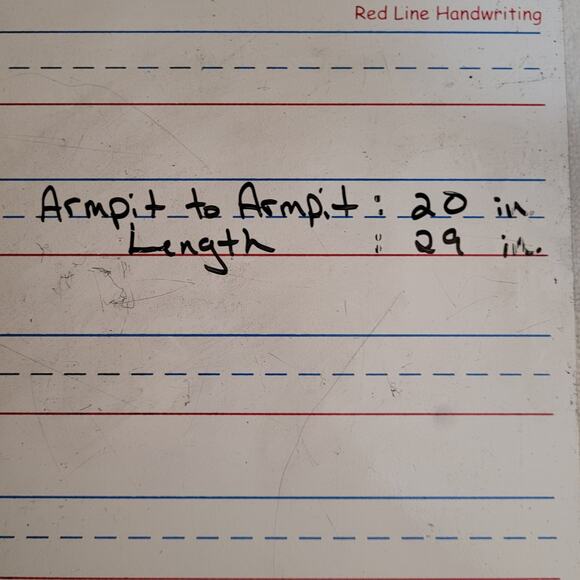 Red Line Handwriting
Armpit to Armpit : 20 in.
Length : 29 in.